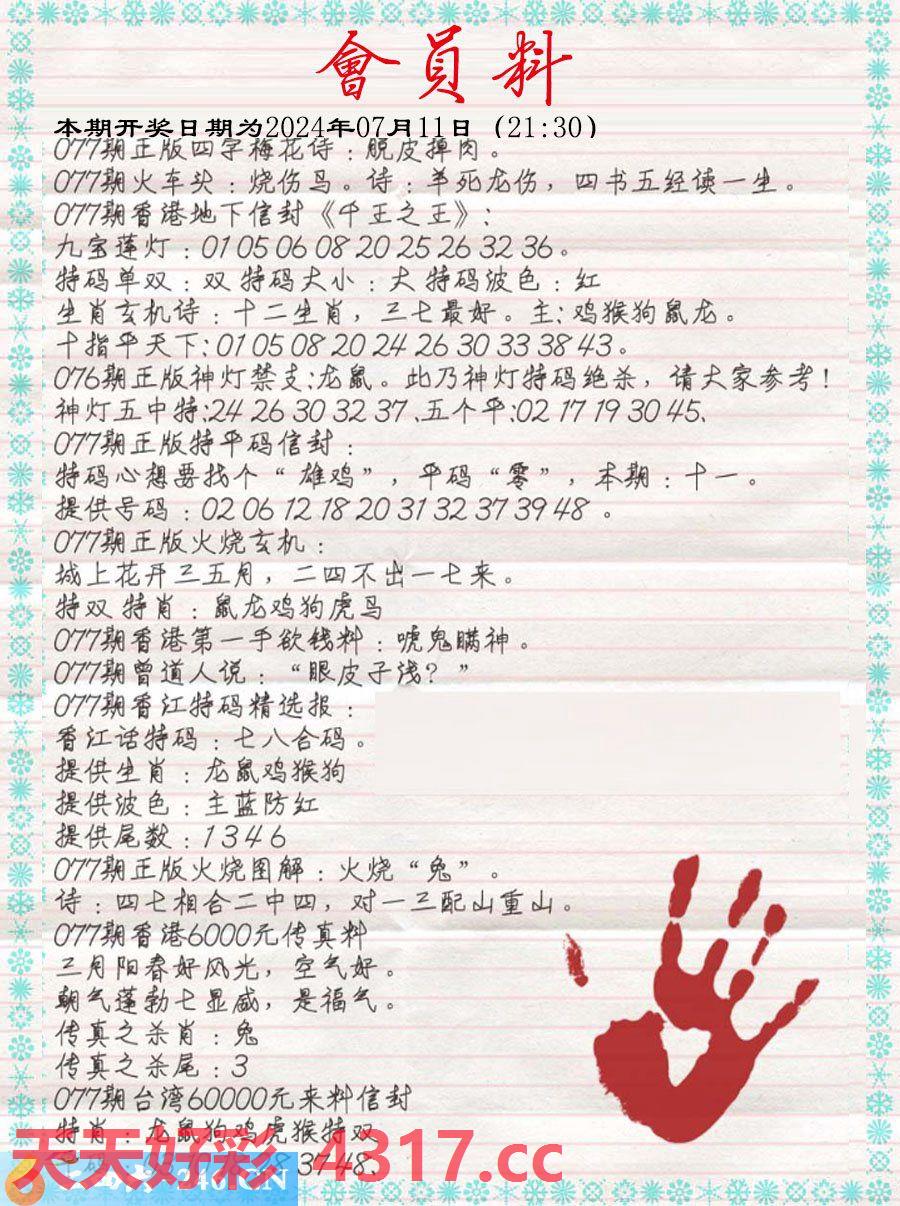 會員料
本期开奖日期为2024年07月11日（21:30）
077期正版四字梅花诗：脱皮掉肉。
077期火车头：烧伤鸟。诗：羊死龙伤，四书五经读一生。
077期香港地下信封《千王之王》：
九宝莲灯：01 05 06 08 20 25 26 32 36。
特码单双：双 特码大小：大 特码波色：红
生肖玄机诗：十二生肖，三七最好。主：鸡猴狗鼠龙。
十指平天下：01 05 08 20 24 26 30 33 38 43。
076期正版神灯禁支：龙鼠。此乃神灯特码绝杀，请大家参考！
神灯五中特：24 26 30 32 37、五个平：02 17 19 30 45、
077期正版特平码信封：
特码心想要找个“雄鸡”，平码“零”，本期：十一。
提供号码：02 06 12 18 20 31 32 37 39 48 。
077期正版火烧玄机：
城上花开三五月，二四不出一七来。
特双 特肖：鼠龙鸡狗虎马
077期香港第一手欲钱料：唬鬼瞒神。
077期曾道人说：“眼皮子浅？”
077期香江特码精选报：
香江话特码：七八合码。
提供生肖：龙鼠鸡猴狗
提供波色：主蓝防红
提供尾数：1 3 4 6
077期正版火烧图解：火烧“兔”。
诗：四七相合二中四，对一三配山重山。
077期香港6000元传真料
三月阳春好风光，空气好。
朝气蓬勃七显威，是福气。
传真之杀肖：兔
传真之杀尾：3
077期台湾60000元来料信封
特肖：龙鼠狗鸡虎猴特双
37 48、
天天好彩 4317.cc
246.CN